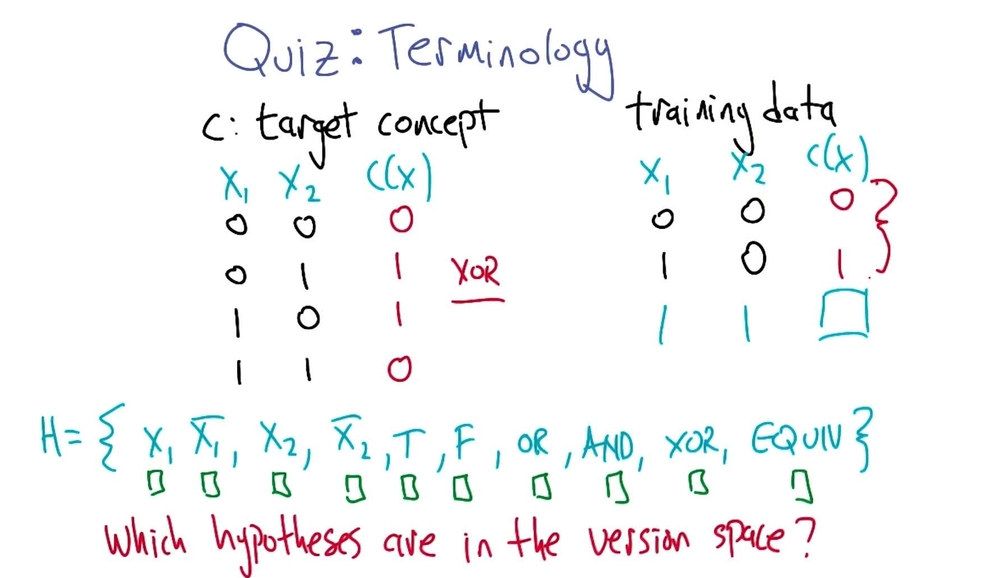 Quiz: Terminology
c: target concept
X₁ X₂ C(X)
0 0 0
0 1 1
1 0 1
1 1 0
XOR
training data
X₁ X₂ C(X)
0 0 0
1 0 1
1 1
H = { X₁, X̅₁, X₂, X̅₂, T, F, OR, AND, XOR, EQUIV }
Which hypotheses are in the version space?